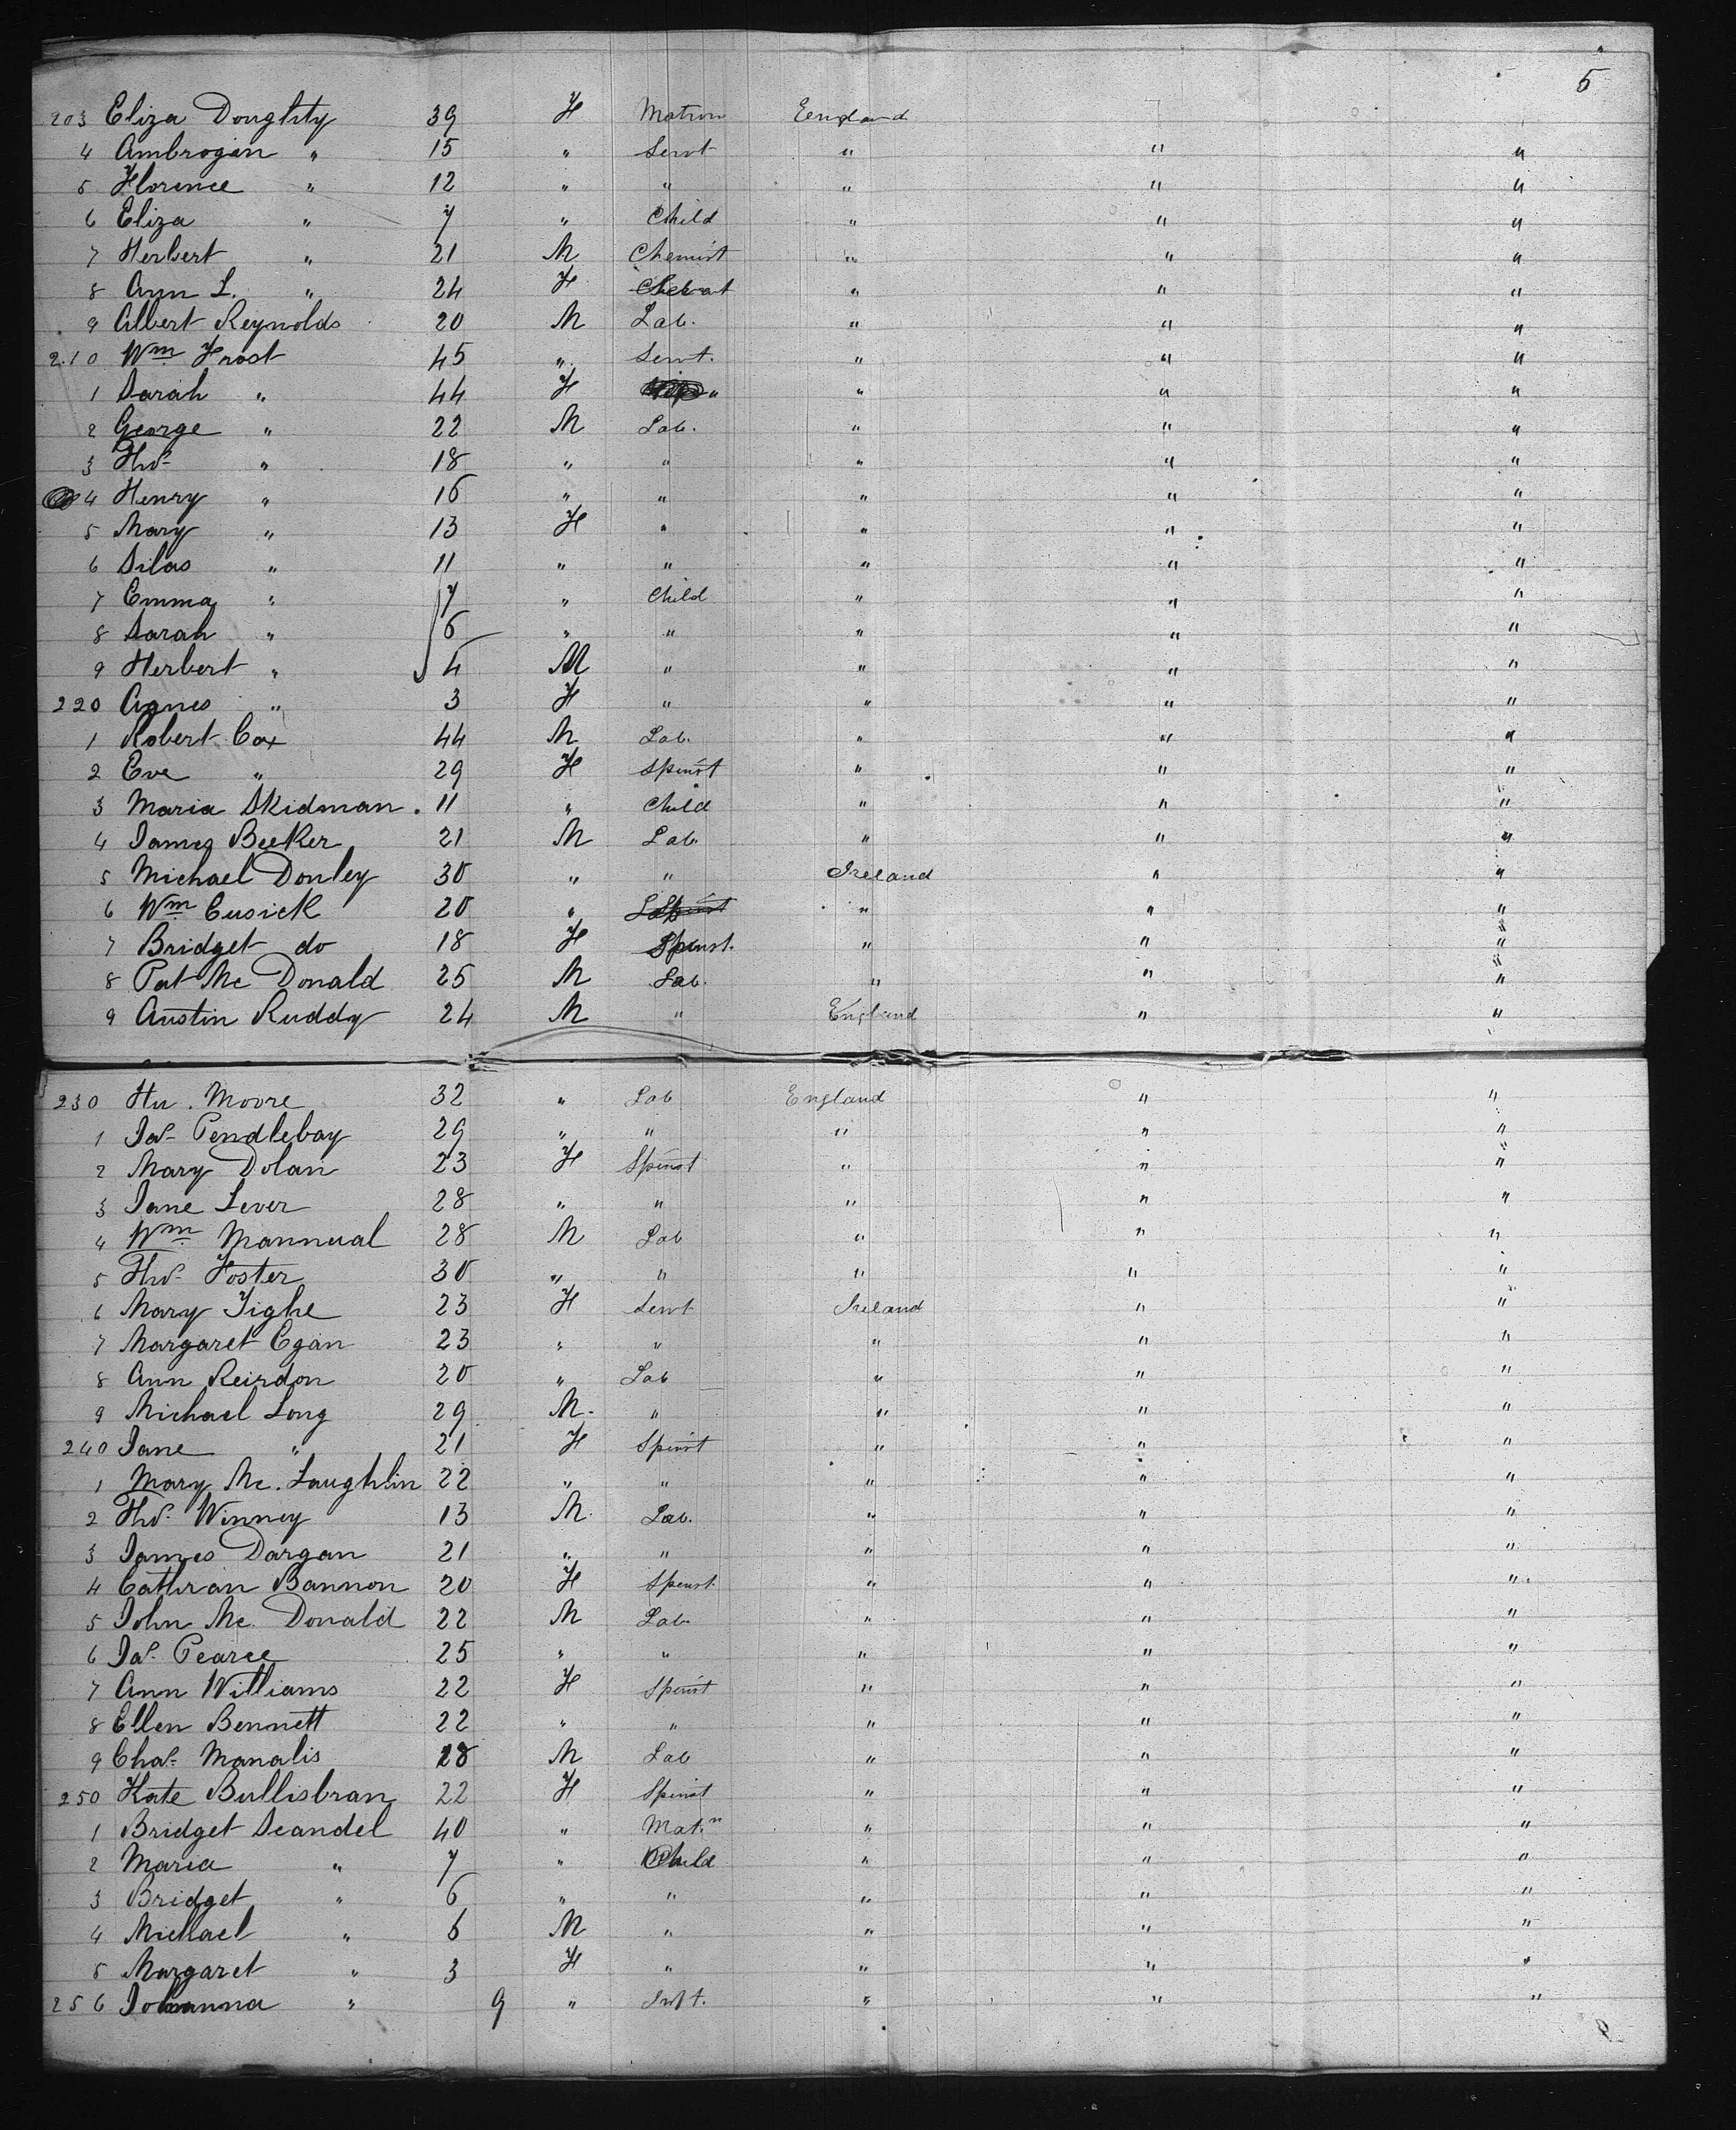 5
203 Eliza Doughty 39 F Matron England
4 Ambrogan " 15 " Servt " " "
5 Florence " 12 " " " " "
6 Eliza " 7 " Child " " "
7 Herbert " 21 M Chemist " " "
8 Ann L. " 24 F " " "
9 Albert Reynolds 20 M Lab. " " "
210 Wm Frost 45 " Servt. " " "
1 Sarah " 44 F " " " "
2 George " 22 M Lab. " " "
3 Thos " 18 " " " " "
4 Henry " 16 " " " " "
5 Mary " 13 F " " " "
6 Silas " 11 " " " " "
7 Emma " 7 " Child " " "
8 Sarah " 6 " " " " "
9 Herbert " 4 M " " " "
220 Agnes " 3 F " " " "
1 Robert Cox 44 M Lab. " " "
2 Eve " 29 F Spinst " " "
3 Maria Skidman 11 " Child " " "
4 James Beeker 21 M Lab. " " "
5 Michael Donley 30 " " Ireland " "
6 Wm Cusick 20 " Lab " " "
7 Bridget do 18 F Spinst. " " "
8 Pat Mc Donald 25 M Lab. " " "
9 Austin Ruddy 24 M " England " "
230 Hu. Moore 32 " Lab England " "
1 Jas Pendlebay 29 " " " " "
2 Mary Dolan 23 F Spinst " " "
3 Jane Lever 28 " " " " "
4 Wm Mannual 28 M Lab " " "
5 Thos Foster 30 " " " " "
6 Mary Tighe 23 F Servt Ireland " "
7 Margaret Egan 23 " " " " "
8 Ann Reirdon 20 " Lab " " "
9 Michael Long 29 M. " " " "
240 Jane " 21 F Spinst " " "
1 Mary Mc. Laughlin 22 " " " " "
2 Thos Winney 13 M. Lab. " " "
3 James Dargan 21 " " " " "
4 Cathran Bannon 20 F Spinst. " " "
5 John Mc. Donald 22 M Lab. " " "
6 Jas Pearce 25 " " " " "
7 Ann Williams 22 F Spinst " " "
8 Ellen Bennett 22 " " " " "
9 Chas Manalis 28 M Lab " " "
250 Kate Bullisbran 22 F Spinst " " "
1 Bridget Scandel 40 " Matn " " "
2 Maria " 7 " Child " " "
3 Bridget " 6 " " " " "
4 Michael " 6 M " " " "
5 Margaret " 3 F " " " "
256 Johanna " 9 " Inft. " " "